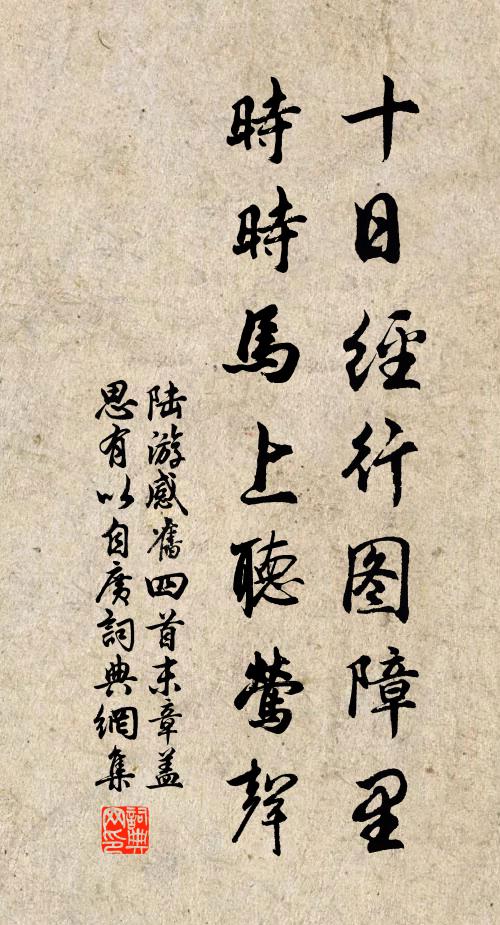 十日經行图障里
時時馬上聽鶯聲
陆游感舊四首末章盖
思有以自广詞典網集
詞典网印